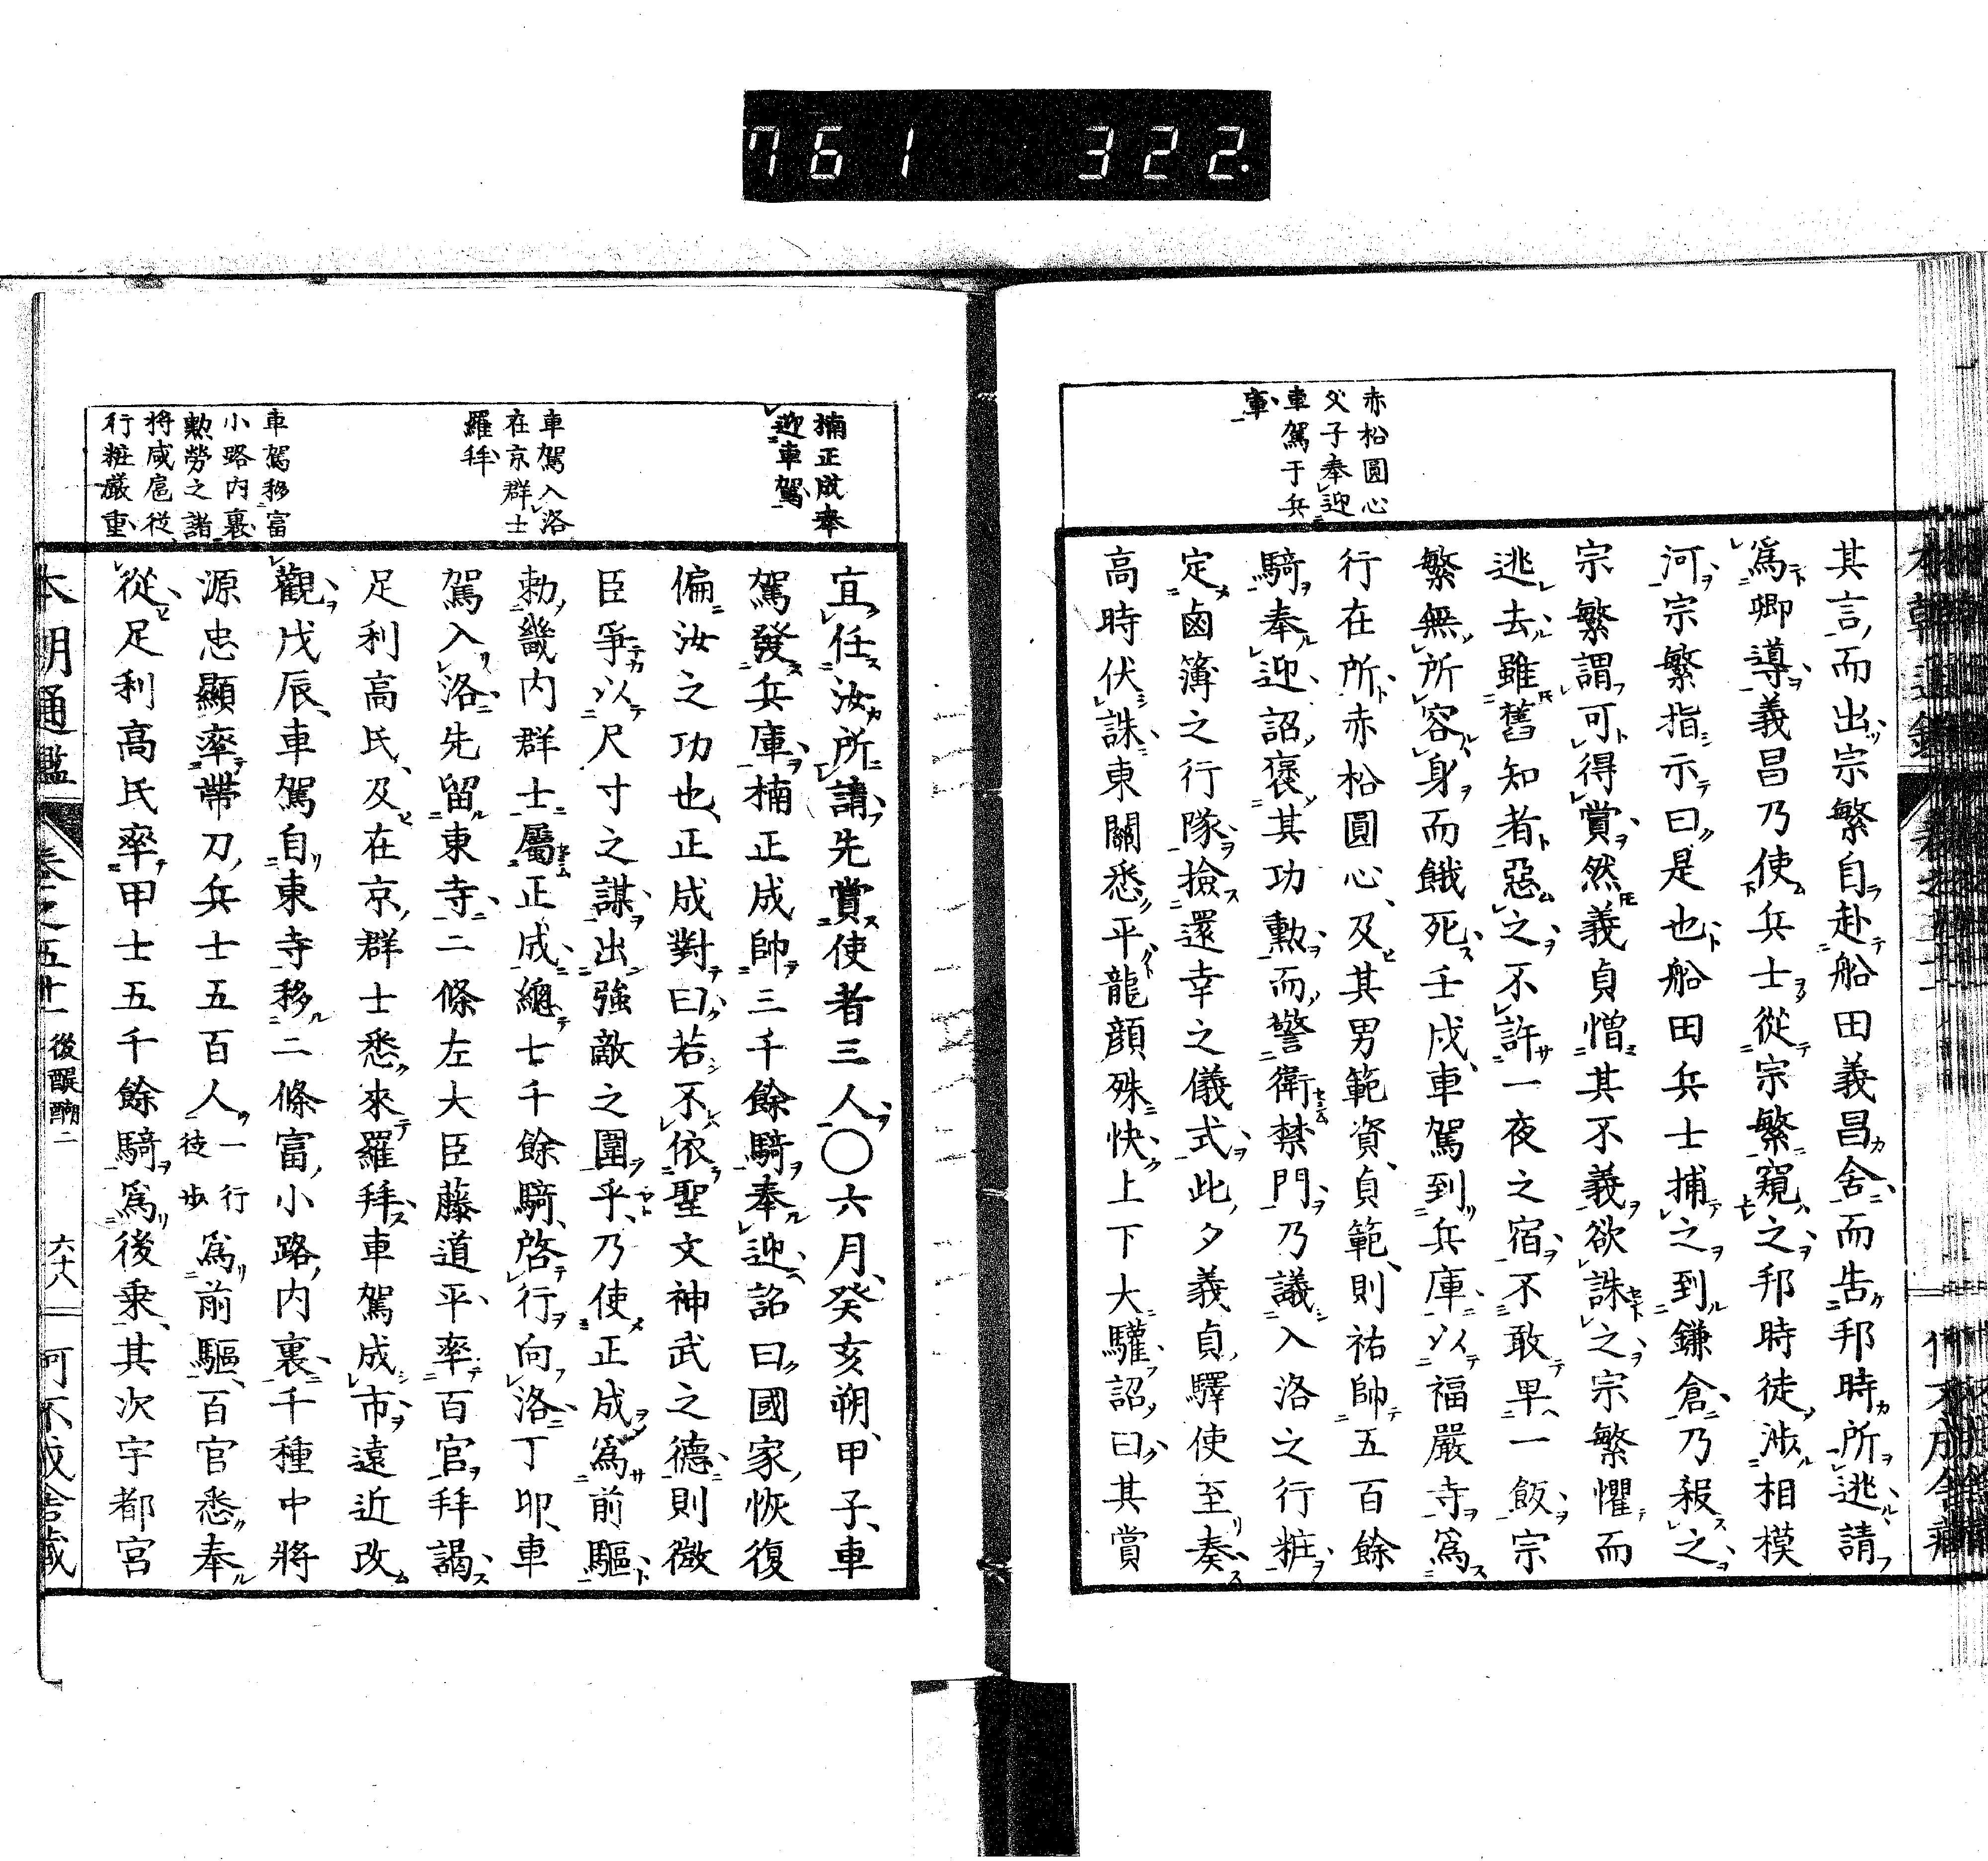 761 322.
赤松圓心
父子奉迎
車駕于兵
庫
其言而出宗繁自赴船田義昌舍而告邦時所逃請
爲卿導義昌乃使兵士從宗繁窺之邦時徒渉相模
河宗繁指示曰是也船田兵士捕之到鎌倉乃殺之
宗繁謂可得賞然義貞憎其不義欲誅之宗繁懼而
逃去雖舊知者惡之不許一夜之宿不敢早一飯宗
繁無所容身而餓死壬戌車駕到兵庫以福嚴寺爲
行在所赤松圓心及其男範資貞範則祐帥五百餘
騎奉迎詔褒其功勳而警衛禁門乃議入洛之行粧
定鹵簿之行隊撿還幸之儀式此夕義貞驛使至奏
高時伏誅東關悉平龍顔殊快上下大驩詔曰其賞
楠正成奉
迎車駕
車駕入洛
在京群士
羅拜
車駕移富
小路内裏
勲勞之諸
將咸扈從
行粧嚴重
宜任汝所請先賞使者三人〇六月癸亥朔甲子車
駕發兵庫楠正成帥三千餘騎奉迎詔曰國家恢復
偏汝之功也正成對曰若不依聖文神武之德則微
臣爭以尺寸之謀出強敵之圍乎乃使正成爲前驅
勅畿内群士屬正成總七千餘騎啓行向洛丁卯車
駕入洛先留東寺二條左大臣藤道平率百官拜謁
足利高氏及在京群士悉來羅拜車駕成市遠近改
觀戊辰車駕自東寺移二條富小路内裏千種中將
源忠顯率帶刀兵士五百人一行徒歩爲前驅百官悉奉
從足利高氏率甲士五千餘騎爲後乗其次宇都宮
本朝通鑑 卷之五十一 後醍醐二 六十八